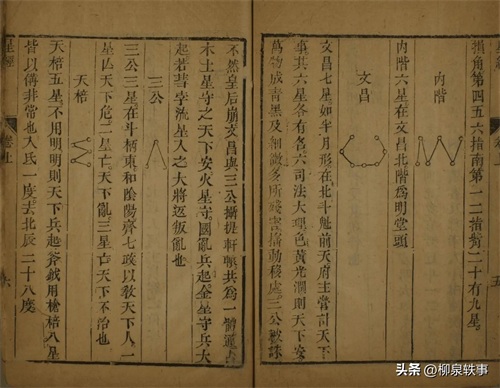 指角第四五六指南第一二指觜二十有九星
內階
內階六星在文昌北階為明堂頭
文昌
文昌七星如半月形在北斗魁前天府主營計天下
事其六星各有名六司法大理色黃光潤則天下安
萬物成青黑及細微多所殘害搖動移處三公被誅
五
不然皇后崩文昌與三公攝提軒轅共為一體通占
木土星守之天下安火星守國亂兵起金星守兵大
起若彗孛流星入之大將返叛亂也
三公
三公三星在斗柄東和陰陽齊七政以教天下人一
星亡天下危二星亡天下亂三星亡天下不治也
天棓
天棓五星不用明明則天下兵起斧鉞用槍棓八星
皆以備非常也入氐一度去北辰二十八度
星經
卷上
六
头条 @柳泉轶事